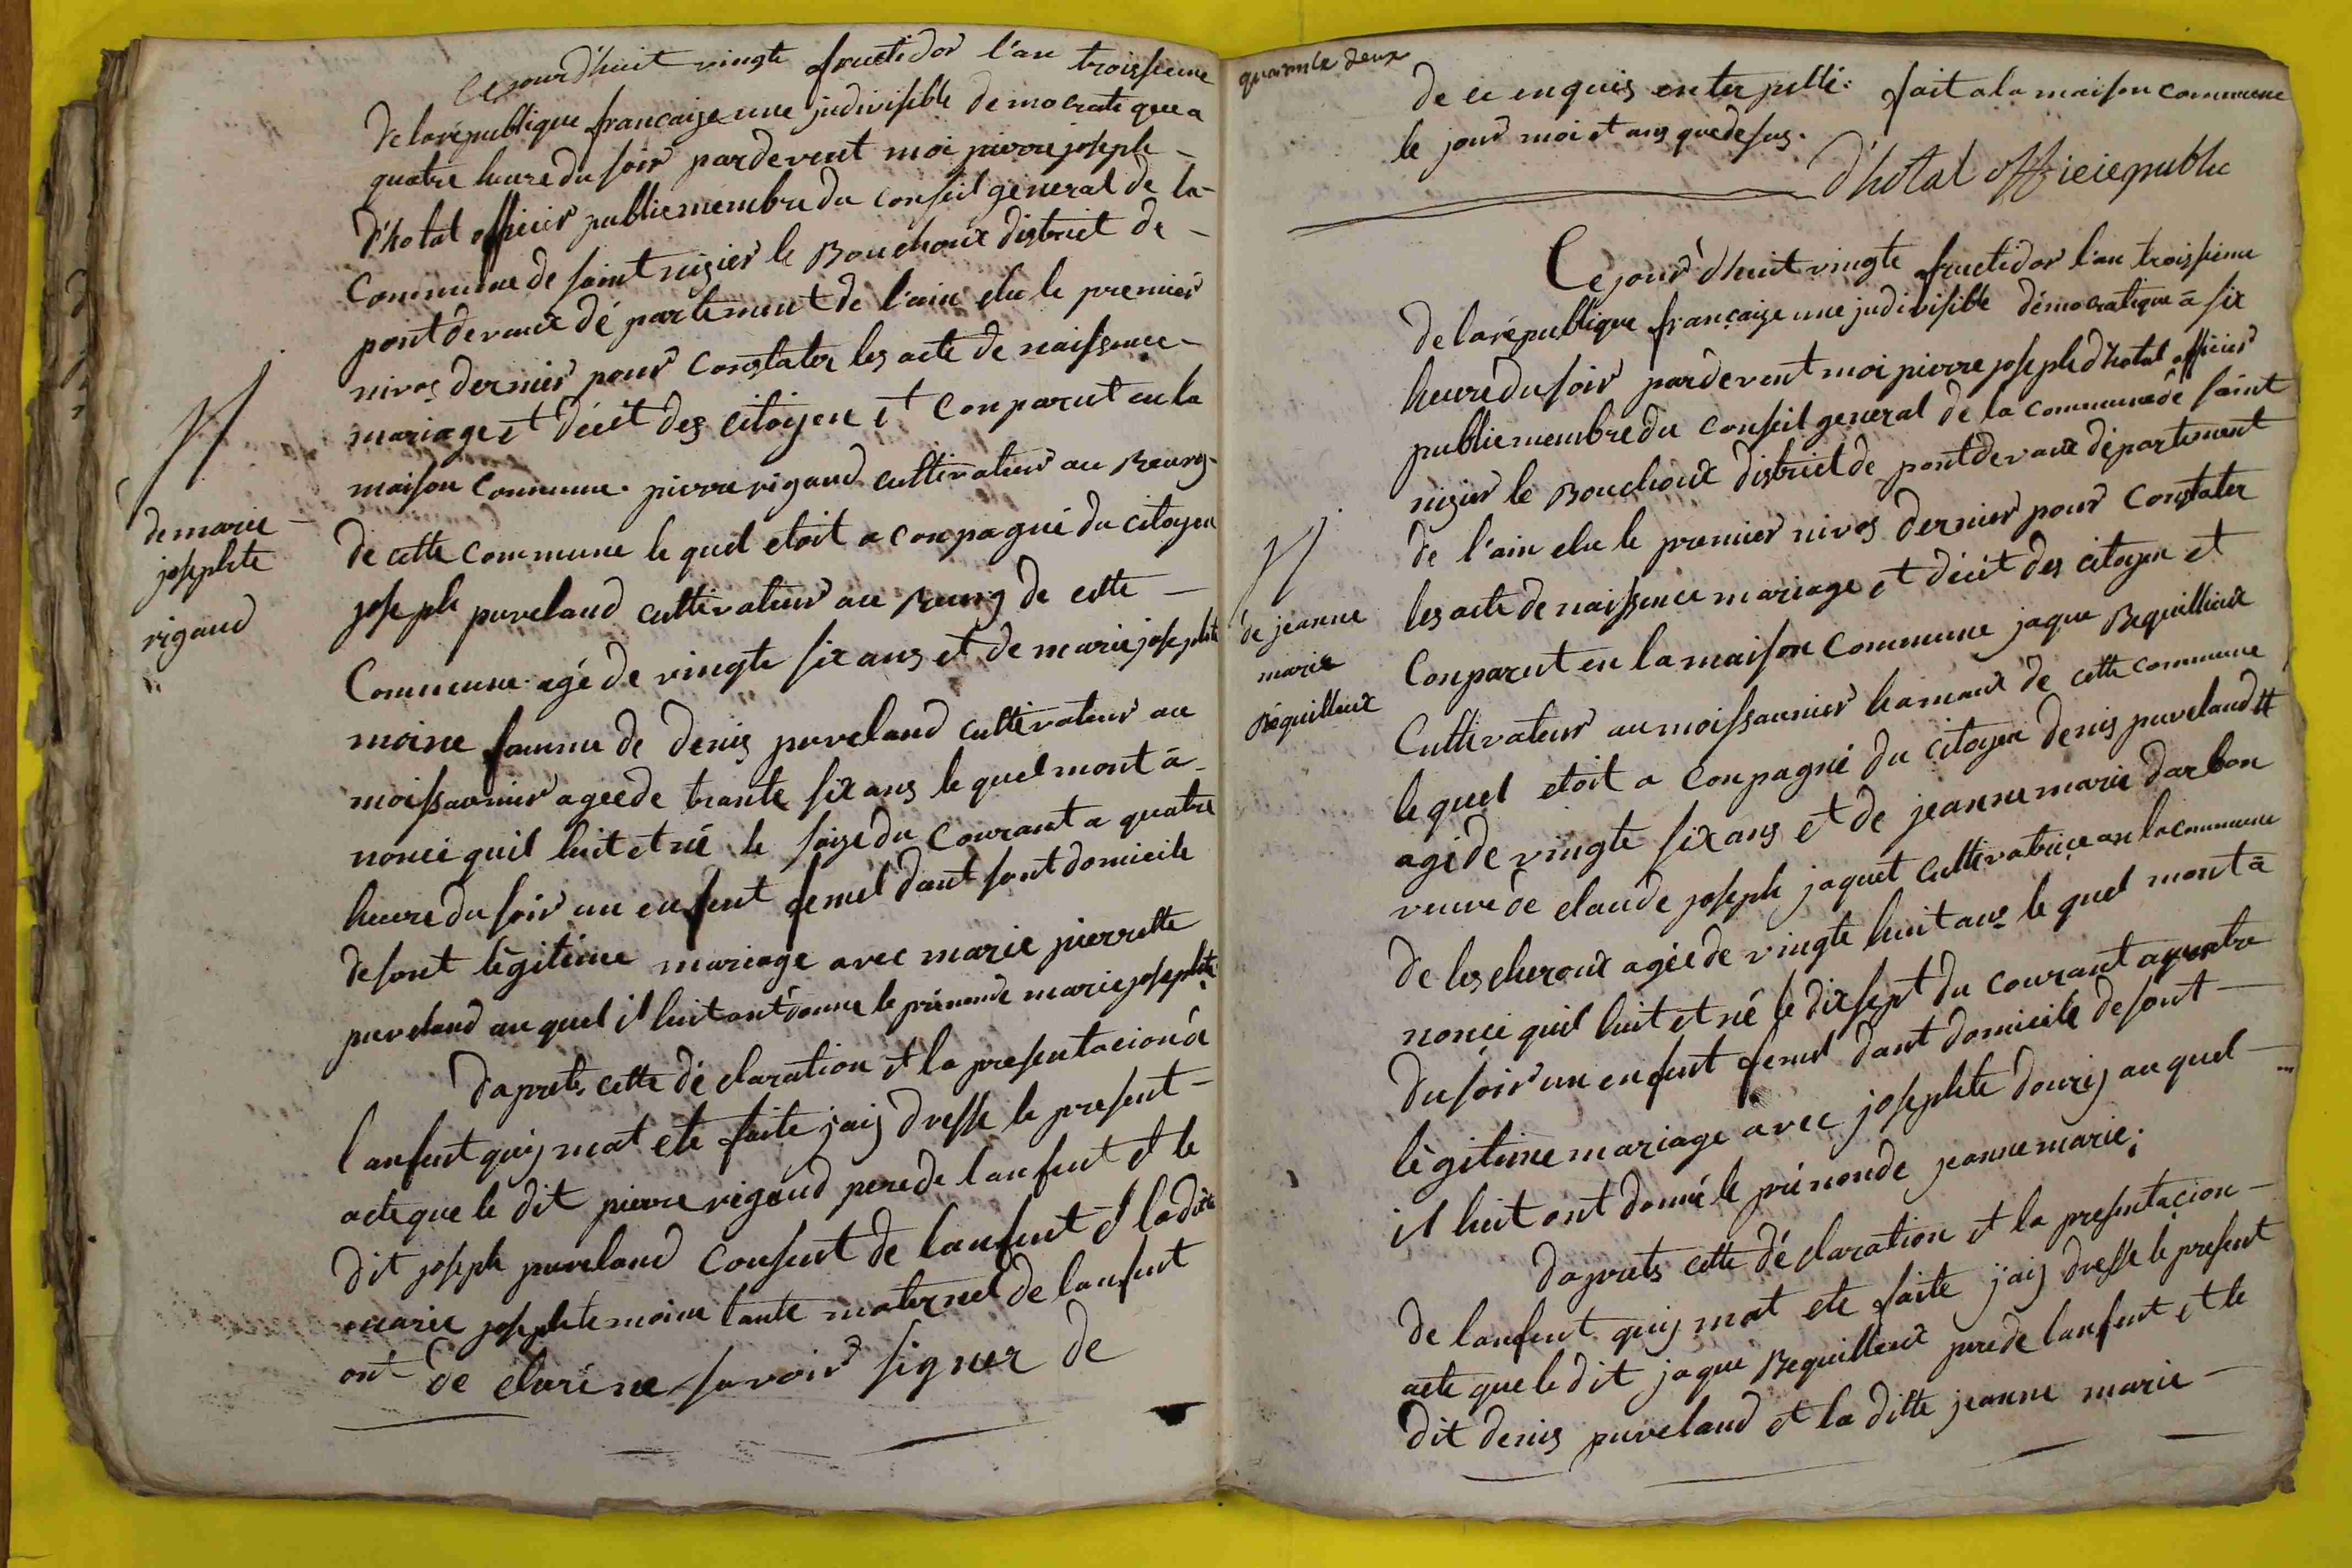 Cejourd'huit vingte fructidor l'an troissieme
de la république francaise une judivisible democratique a
quatre heure du soir pardevent moi pierre joseph
d'hotal officier publie membre du conseil general de la
Commune de saint nizier le Bouchoux district de
pontdevaux département de l'ain elu le premier
nivos dernier pour constater les acte de naissence
mariage et décét des citoyen et conparut en la
maison commune pierre rigaud cultivateur au Bourg
de cette commune le quel etoit a conpagné du citoyen
joseph puveland cultivateur au Bourg de cette
Commune agé de vingte six ans et de marie josephte
moine famme de denis puveland cultivateur au
moissaunier agée de trante six ans le quel mont a
noncé quil luit et né le saize du courant a quatre
heure du soir un enfent femel dant sont domicile
de sont légitime mariage avec marie pierrette
puveland au quel il luit ont donne le prénonde marie josephte
daprets cette déclaration et la presentacion de
lanfent quij mat ete faite jaij dresse le present
acte que le dit pierre rigaud pere de lanfent et le
dit joseph puveland consent de lanfent et la dite
marie josephte moine tante maternel de lanfent
ont déclaré ne savoir signer de
N
de marie
josephte
rigaud
quarente deux
de ce enquis enterpellé: fait a la maison commune
le jour moi et ans que desus.
d'hotal officie publie
Cejour d'huit vingte fructidor l'an troissieme
de la république française une judivisible démocratique à six
heure du soir pardevent moi pierre joseph d'hotal officier
publie membre du conseil general de la commune de saint
nizier le Bouchoux district de pontdevaux département
de l'ain elu le premier nivos dernier pour constater
les acte de naissence mariage et décét des citoyen et
Conparut en la maison commune jaque Bequilleux
Cultivateur au moissaunier hamaux de cette commune
le quel etoit a conpagné du citoyen denis puveland #
agé de vingte six ans et de jeanne marie darbon
veuve de claude joseph jaquet cultivatrice an la commune
de lescheroux agée de vingte huit ans le quel mont a
noncé quil luit et né le dixsept du courant a quatre
du soir un enfent femel dant domicile de sont
légitime mariage avec josephte dourij au quel
il luit ont donné le prénonde jeanne marie;
daprets cette déclaration et la presentacion
de lanfent quij mat ete faite jaij dresse le present
acte que le dit jaque Bequilleux pere de lanfent et le
dit denis puveland et la ditte jeanne marie
N
de jeanne
marie
Béquilleux